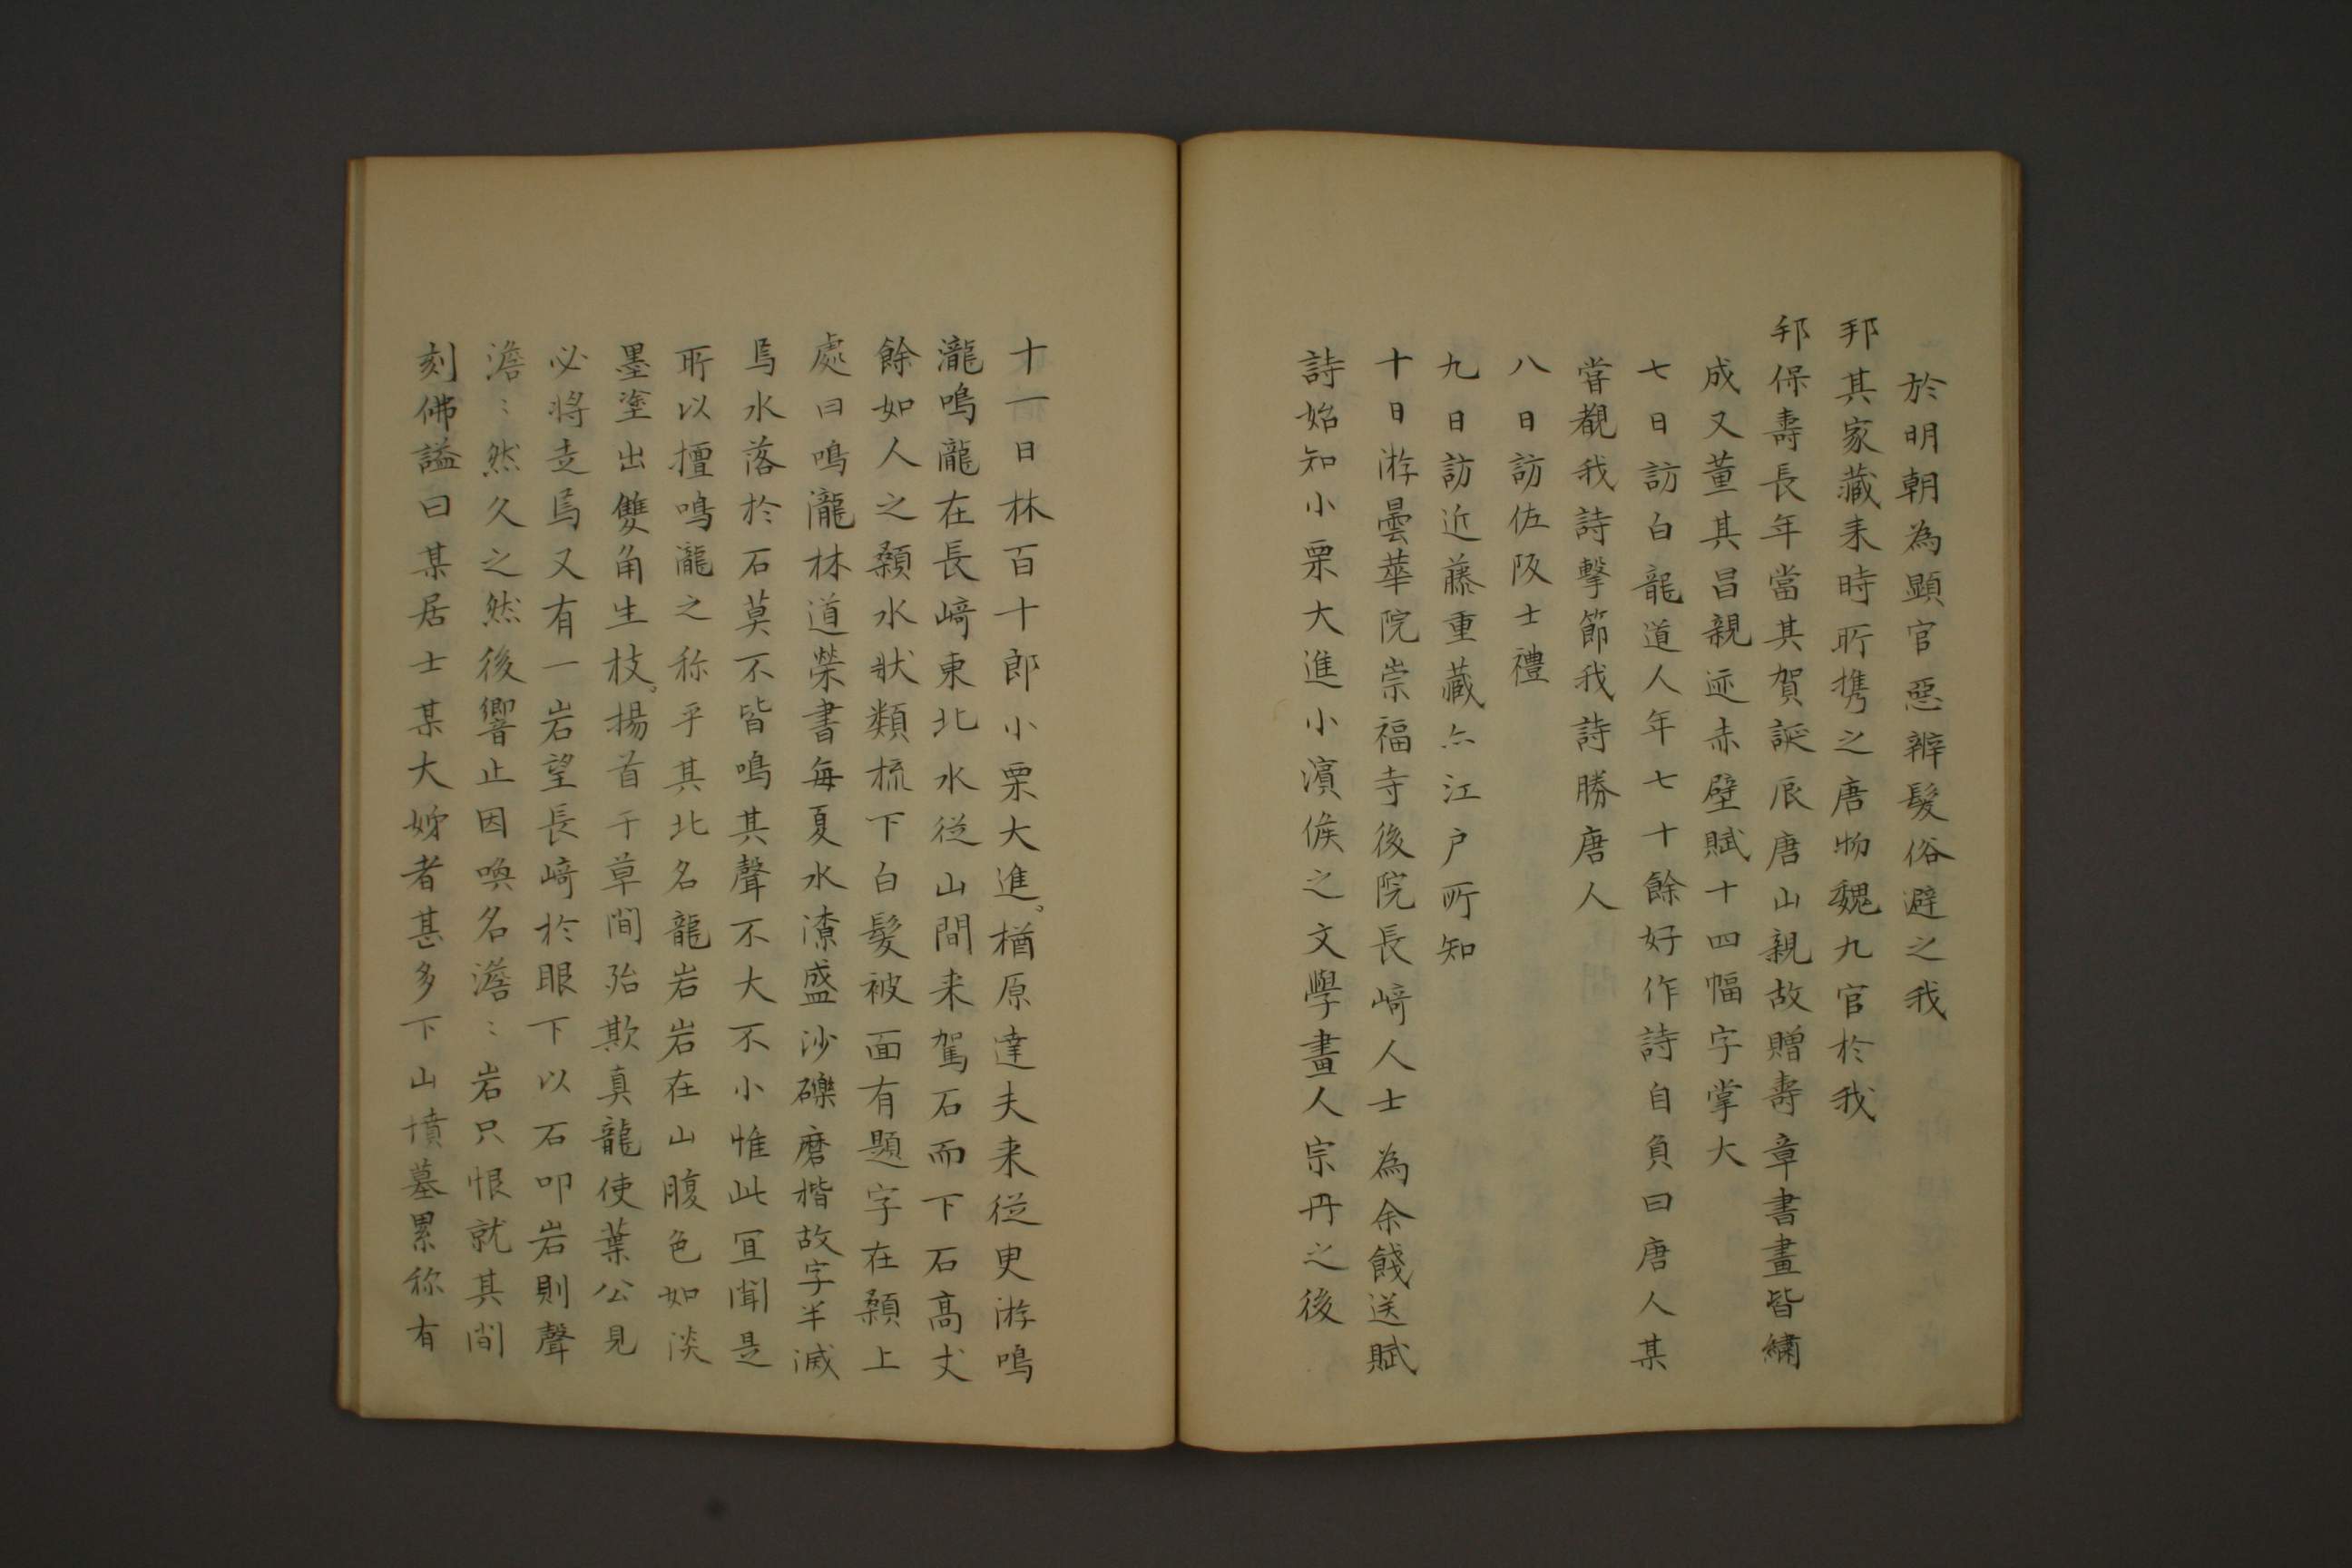 於明朝為顕官惡辨髮俗避之我
邦其家藏来時所携之唐物魏九官於我
邦保壽長年當其賀誕辰唐山親故贈壽章書畫皆繡
成又董其昌親迹赤壁賦十四幅字掌大
七日訪白龍道人年七十餘好作詩自負曰唐人某
甞覩我詩撃節我詩勝唐人
八日訪佐阪士禮
九日訪近藤重藏亦江户所知
十日游曇華院崇福寺後院長﨑人士為余餞送賦
詩始知小栗大進小濵侯之文學畫人宗丹之後
十一日林百十郎小栗大進。楢原達夫来從叓游鳴
瀧鳴瀧在長﨑東北水從山間来駕石而下石高丈
餘如人之顙水狀類梳下白髮被面有題字在顙上
處曰鳴瀧林道榮書每夏水潦盛沙礫磨揩故字半滅
焉水落於石莫不皆鳴其聲不大不小惟此宜聞是
所以擅鳴瀧之称乎其北名龍岩岩在山腹色如淡
墨塗出雙角生枝。揚首于草間殆欺真龍使葉公見
必将走焉又有一岩望長﨑於眼下以石叩岩則聲
澹〻然久之然後響止因喚名澹〻岩只恨就其間
刻佛謚曰某居士某大姊者甚多下山墳墓累称有